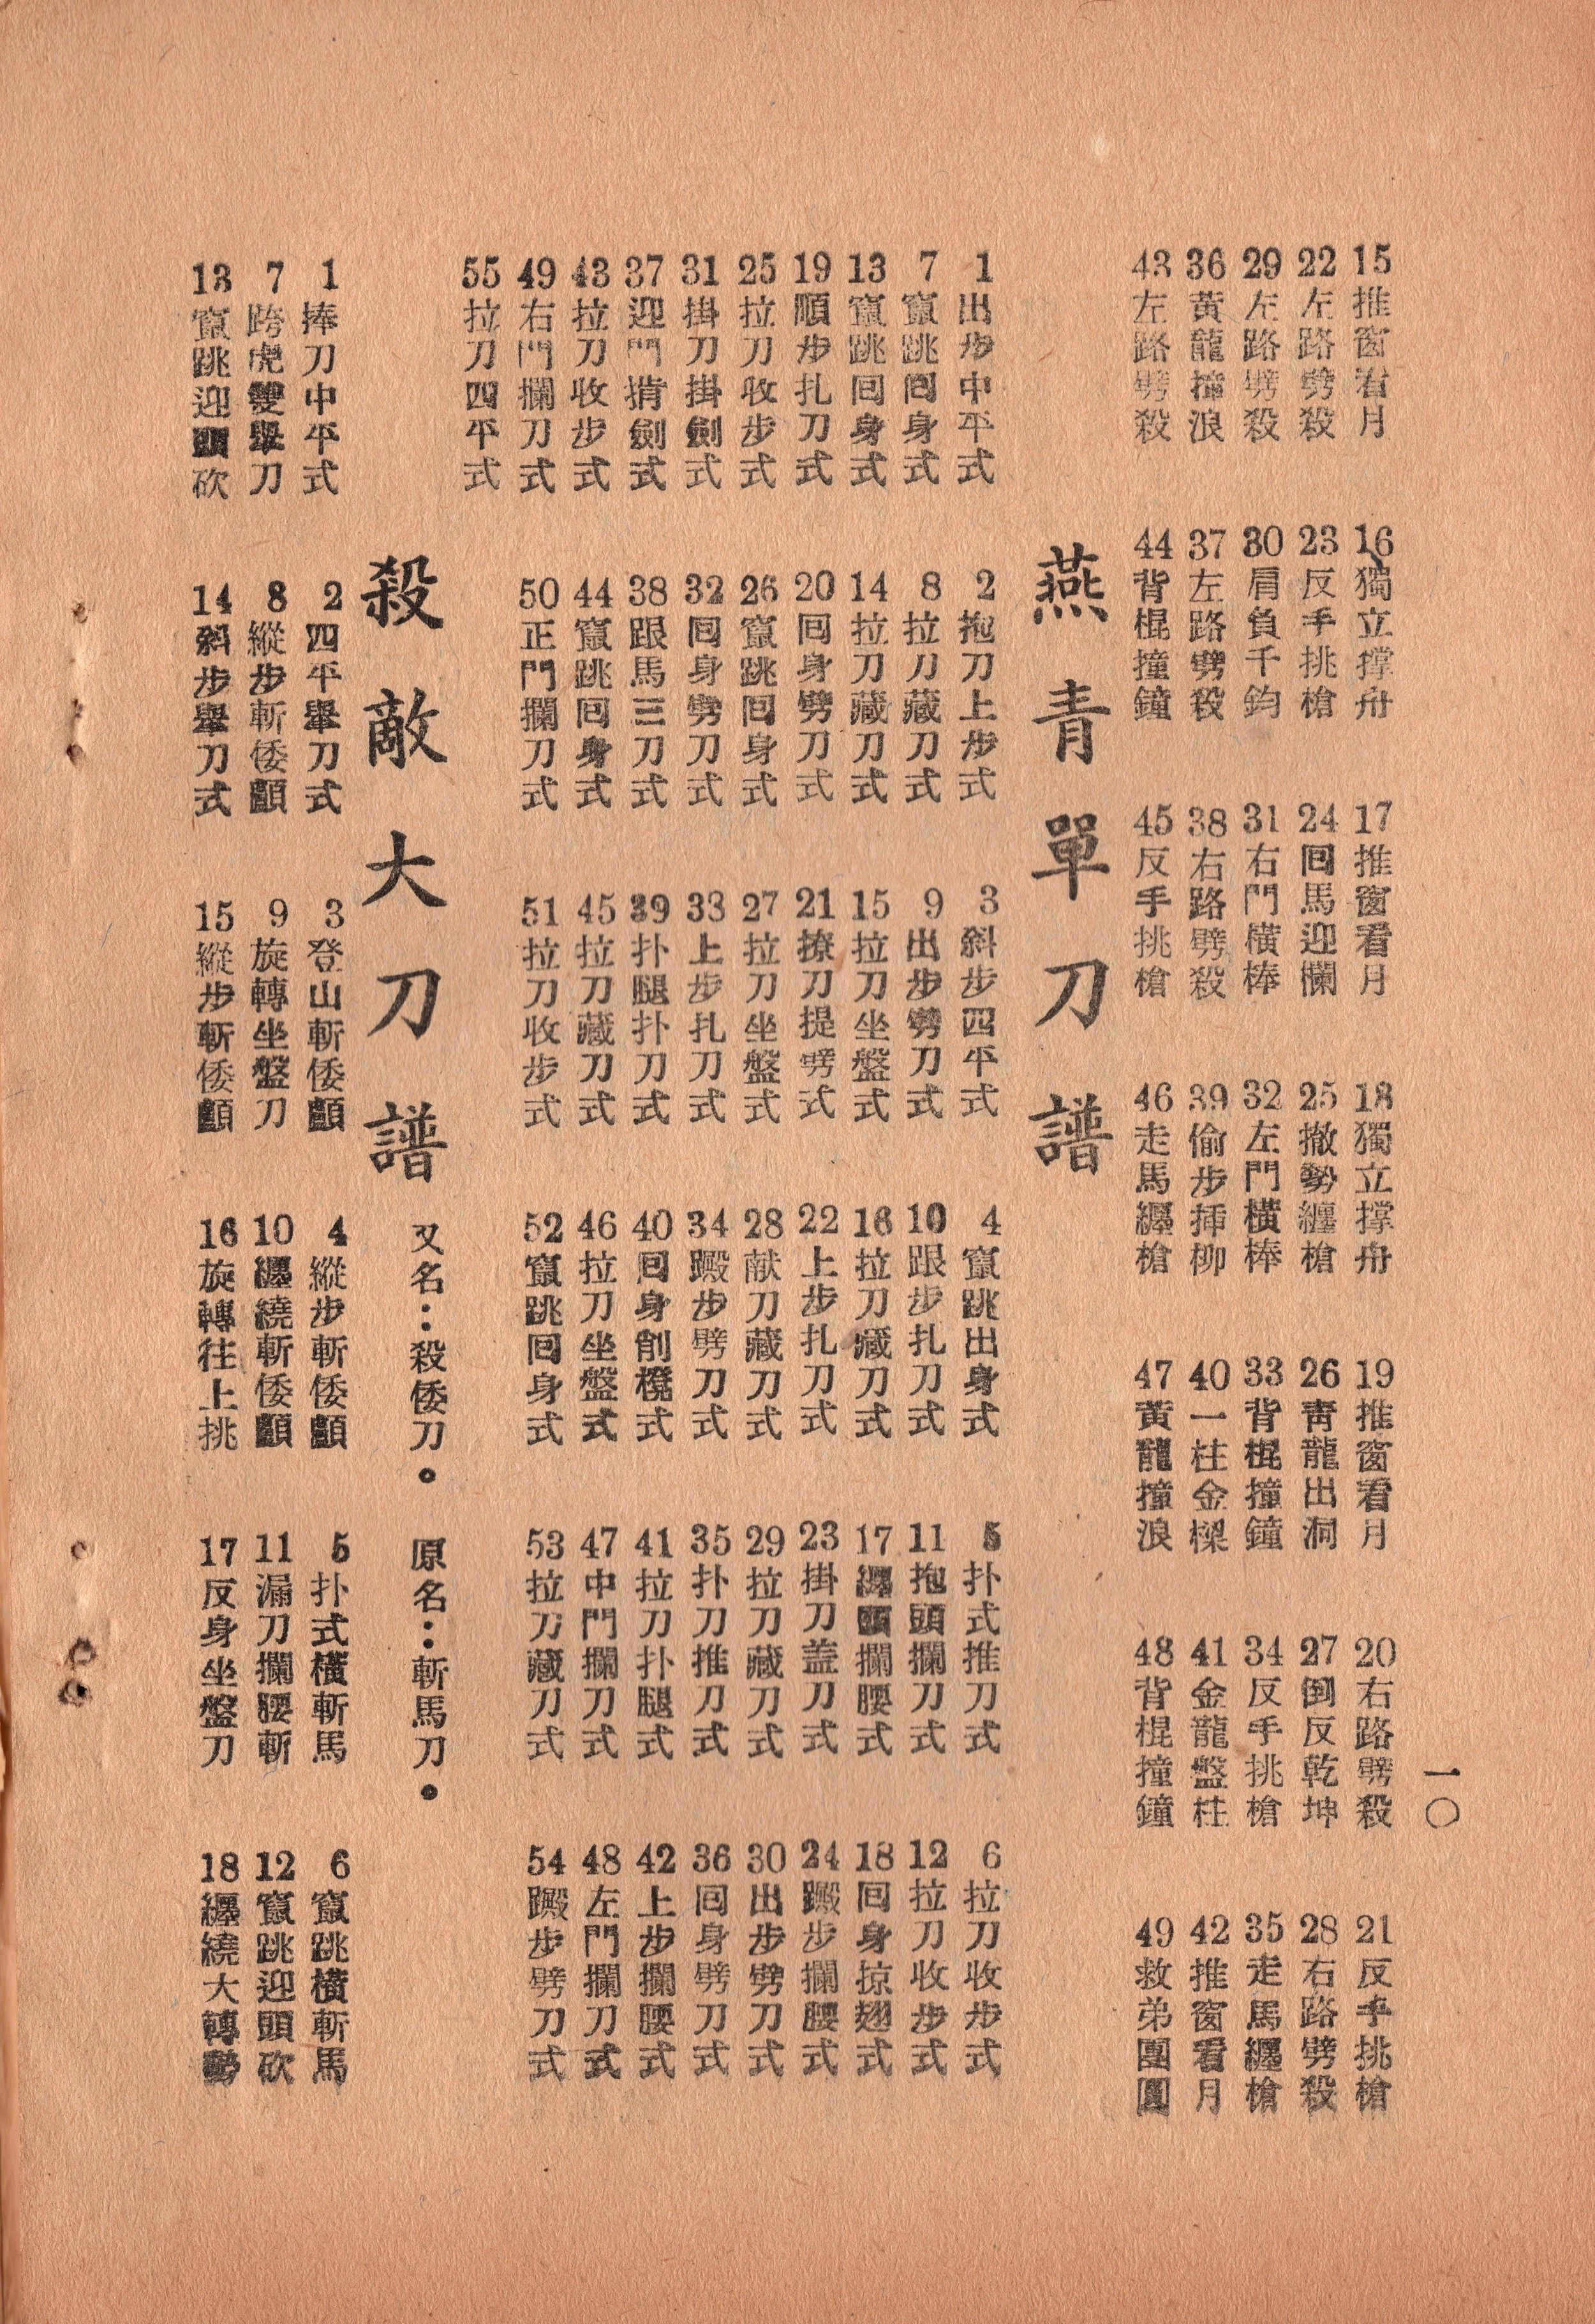 15推窗看月　16獨立撐舟　17推窗看月　18獨立撐舟　19推窗看月　20右路劈殺　21反手挑槍
22左路劈殺　23反手挑槍　24囘馬迎欄　25撤勢纒槍　26靑龍出洞　27倒反乾坤　28右路劈殺
29左路劈殺　30肩負千鈞　31右門橫棒　32左門橫棒　33背棍撞鐘　34反手挑槍　35走馬纒槍
36黃龍撞浪　37左路劈殺　38右路劈殺　39偷步揷柳　40一柱金樑　41金龍盤柱　42推窗看月
43左路劈殺　44背棍撞鐘　45反手挑槍　46走馬纒槍　47黃龍撞浪　48背棍撞鐘　49救弟團圓
燕青單刀譜
1出步中平式　2抱刀上步式　3斜步四平式　4竄跳出身式　5扑式推刀式　6拉刀收步式
7竄跳囘身式　8拉刀藏刀式　9出步劈刀式　10跟步扎刀式　11抱頭攔刀式　12拉刀收步式
13竄跳囘身式　14拉刀藏刀式　15拉刀坐盤式　16拉刀藏刀式　17纒頭攔腰式　18囘身掠翅式
19順步扎刀式　20囘身劈刀式　21撩刀提劈式　22上步扎刀式　23掛刀蓋刀式　24躑步攔腰式
25拉刀收步式　26竄跳囘身式　27拉刀坐盤式　28献刀藏刀式　29拉刀藏刀式　30出步劈刀式
31掛刀掛劍式　32囘身劈刀式　33上步扎刀式　34躑步劈刀式　35扑刀推刀式　36囘身劈刀式
37迎門揹劍式　38跟馬三刀式　39扑腿扑刀式　40囘身削櫈式　41拉刀扑腿式　42上步攔腰式
43拉刀收步式　44竄跳囘身式　45拉刀藏刀式　46拉刀坐盤式　47中門攔刀式　48左門攔刀式
49右門攔刀式　50正門攔刀式　51拉刀收步式　52竄跳囘身式　53拉刀藏刀式　54躑步劈刀式
55拉刀四平式
殺敵大刀譜　又名：殺倭刀。　原名：斬馬刀。
1捧刀中平式　2四平舉刀式　3登山斬倭顱　4縱步斬倭顱　5扑式橫斬馬　6竄跳橫斬馬
7跨虎雙舉刀　8縱步斬倭顱　9旋轉坐盤刀　10纒繞斬倭顱　11漏刀攔腰斬　12竄跳迎頭砍
13竄跳迎頭砍　14斜步舉刀式　15縱步斬倭顱　16旋轉往上挑　17反身坐盤刀　18纒繞大轉勢
一〇